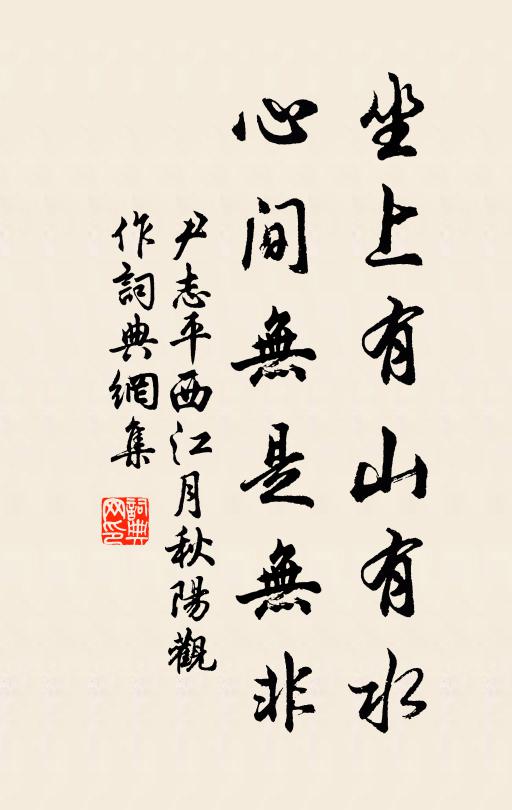 坐上有山有水
心間無是無非
尹志平西江月秋陽觀
作詞典網集
詞典
网印